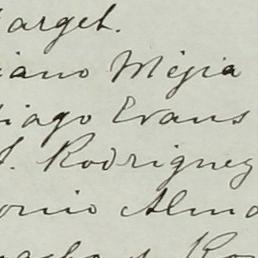 arget.
iano Mejia
iago Evans
J. Rodriguez
onio Alma